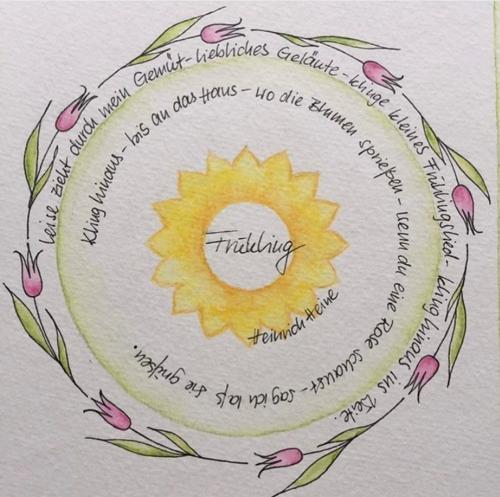 Leise zieht durch mein Gemüt - liebliches Geläute - klinge kleines Frühlingslied - kling hinaus ins Weite.
Kling hinaus - bis an das Haus - wo die Blumen sprießen - wenn du eine Rose schaust - sag ich laß sie grüßen.
Frühling
Heinrich Heine